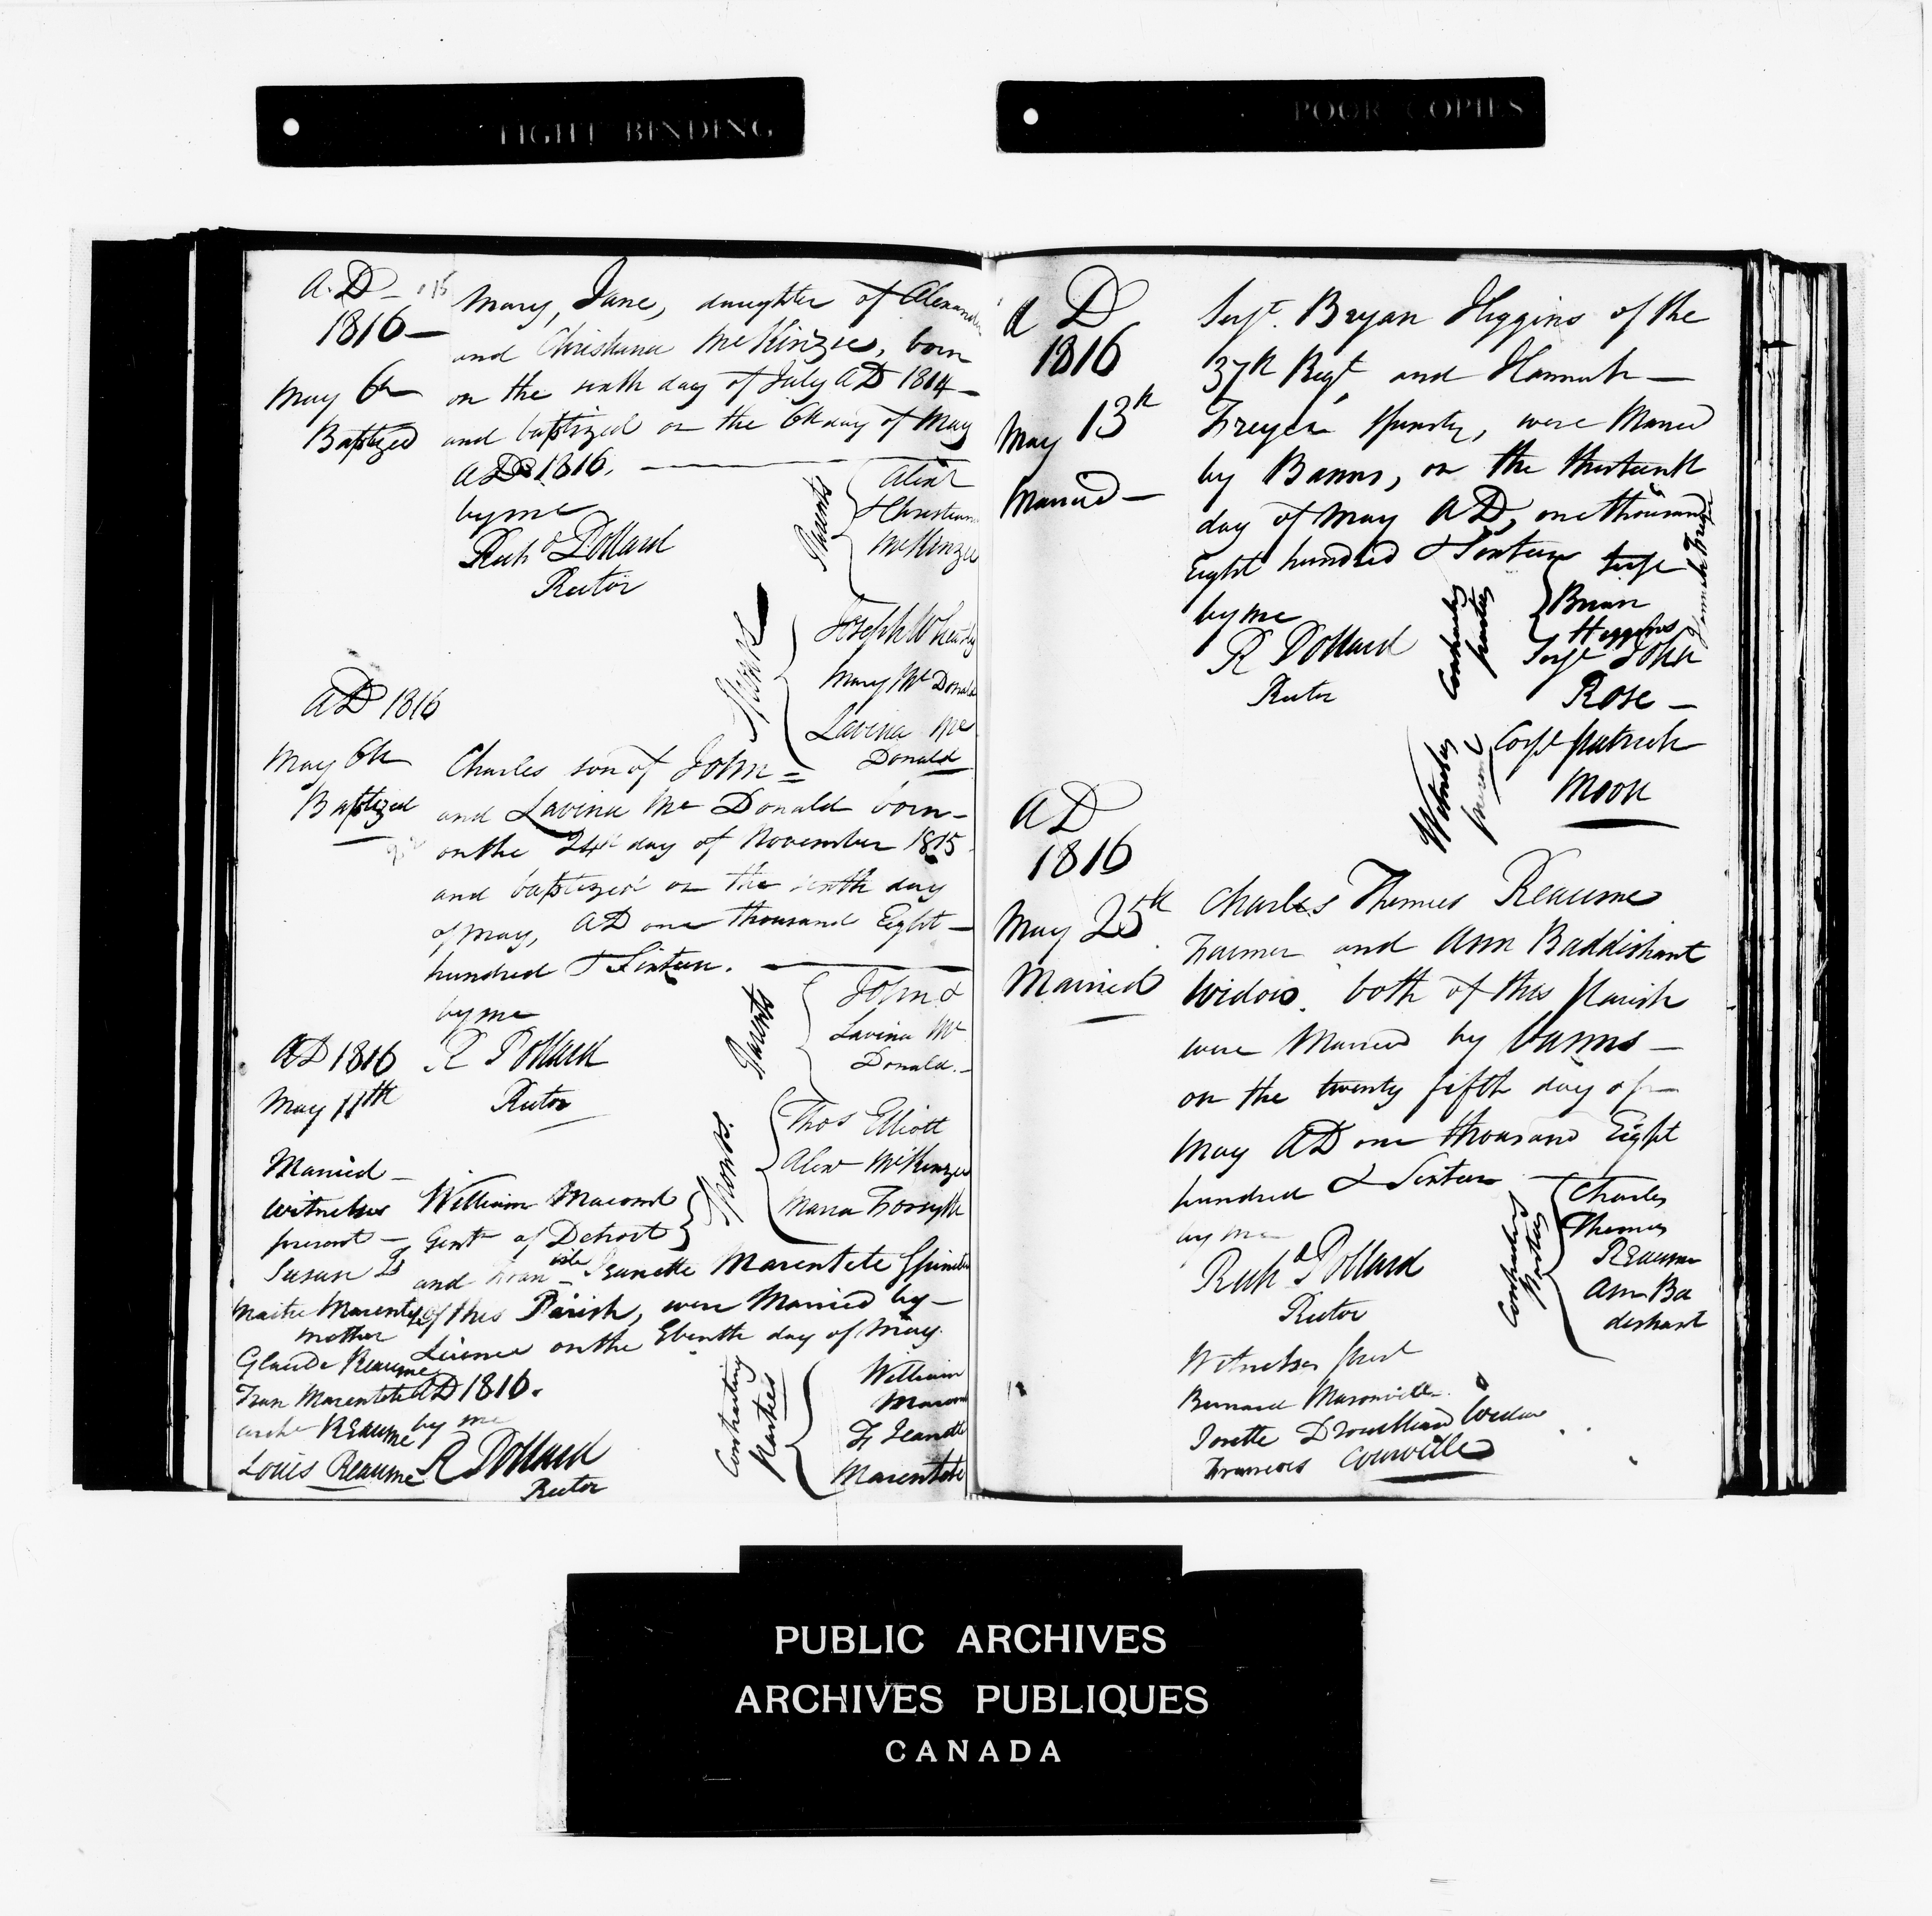 TIGHT BINDING
POOR COPIES
A.D —
1816 —
May 6th
Baptized
Mary, Jane, daughter of Alexander
and Christiana McKinzee, born
on the sixth day of July AD 1814 —
and baptized on the 6th day of May
AD 1816.
by me
Richd Pollard
Rector
Parents
Alexr
& Christiana
McKinzee
Sponsrs
Joseph Wheatly
Mary Mc Donald
Lavina Mc
Donald
AD 1816
May 6th
Baptized
Charles son of John =
and Lavina Mc Donald born —
on the 24th day of November 1815
and baptized on the sixth day
of May, AD one thousand Eight —
hundred & Sixteen.
by me
R Pollard
Rector
Parents
John &
Lavina Mc
Donald. —
Sponsrs.
Thos Elliott
Alexr McKinzee
Maria Forsyth
AD 1816
May 11th
Married —
Witnesses
present —
Susan
Maitre Marentete
mother
Glaude Reaume
Fran Marentete
Reaume
Louis Reaume
William Macomb
Gent of Detroit
and Fran Jeanette Marentete Spinster
of this Parish, were Married by —
Licence on the Eleventh day of May.
AD 1816.
by me
R Pollard
Rector
Contracting
Parties
William
Macomb
Fr Jeanette
Marentete
A D
1816
May 13th
Married —
Serjt. Bryan Higgins of the
37th Regt and Hannah —
Freyer Spinster, were Married
by Banns, on the thirteenth
day of May AD, one thousand
Eight hundred & Sixteen
by me
R Pollard
Rector
Contracting
parties
Serjt
Brian
Higgins
Hannah Freyer
Witnesses
present
Serjt John
Rose —
Corpl Patrick
Moon
AD
1816
May 25th
Married
Charles Thomas Reaume
Farmer and Ann Baddishant
Widow. both of this Parish
were Married by banns —
on the twenty fifth day of —
May AD one thousand Eight
hundred & Sixteen —
by me
Richd Pollard
Rector
Contracting
Parties
Charles
Thomas
Reaume
Ann Ba
dishant
Witnesses
Bernard Maronville
Josette Drouillard Widow
Francois Courville
PUBLIC ARCHIVES
ARCHIVES PUBLIQUES
CANADA